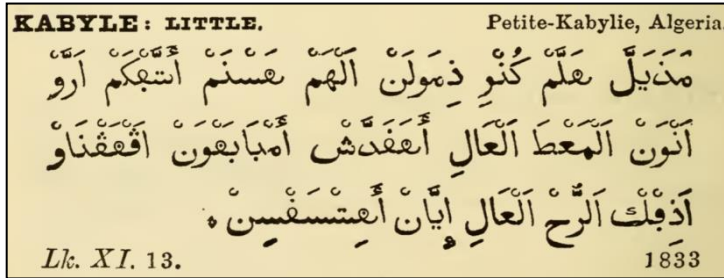 KABYLE: LITTLE. Petite-Kabylie, Algeria.
مَذَيَلَّ هَلَّمْ كُنْوِ ذِمَوْلَنْ اَلْهَمْ هَسْنَمْ أَتَّفْكَمْ اَرَّوْ
اَنْوَنْ اَلْمَعْطَ اَلْعَالِ أَهَفَدَّشْ أَمْبَابَهْوَنْ اڤْهَڤْنَاوْ
اَذِفْكْ اَلرُّحْ اَلْعَالِ إِيَّانْ أَهِتْسَفْسِنْ ⁕
Lk. XI. 13. 1833